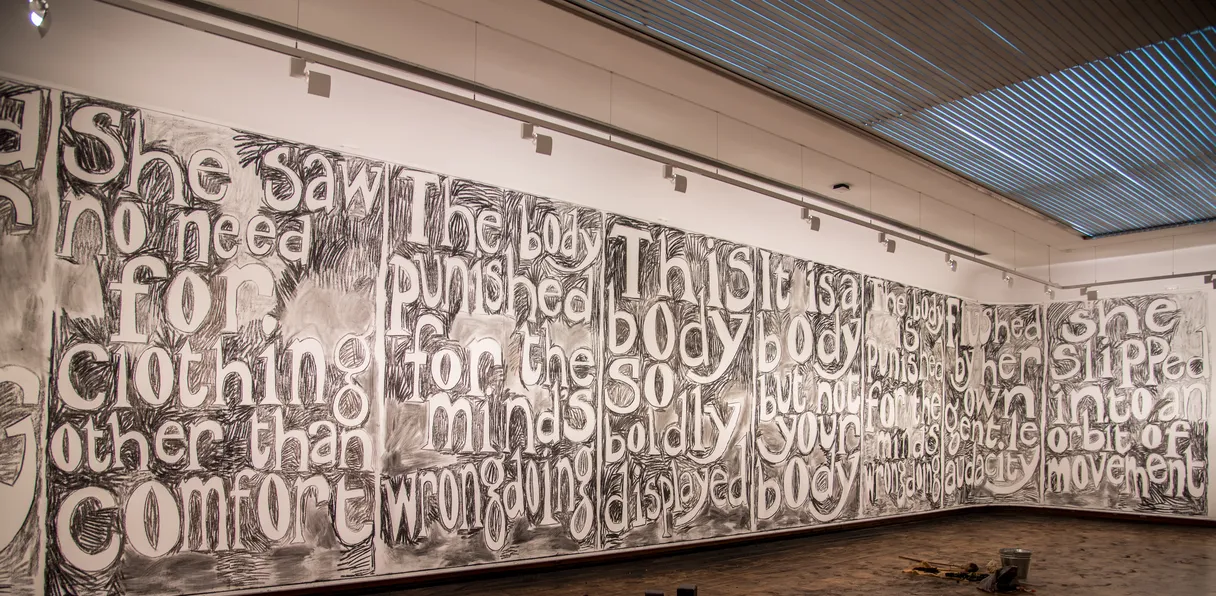 She saw
no need
for.
clothing
other than
comfort
The body
punished
for the
mind's
wrongdoing
This
body
so
boldly
displayed
It is a
body
but not
your
body
The body
punished
for the
mind's
wrongdoing
Flushed
by her
own
gentle
audacity
she
slipped
into an
orbit of
movement